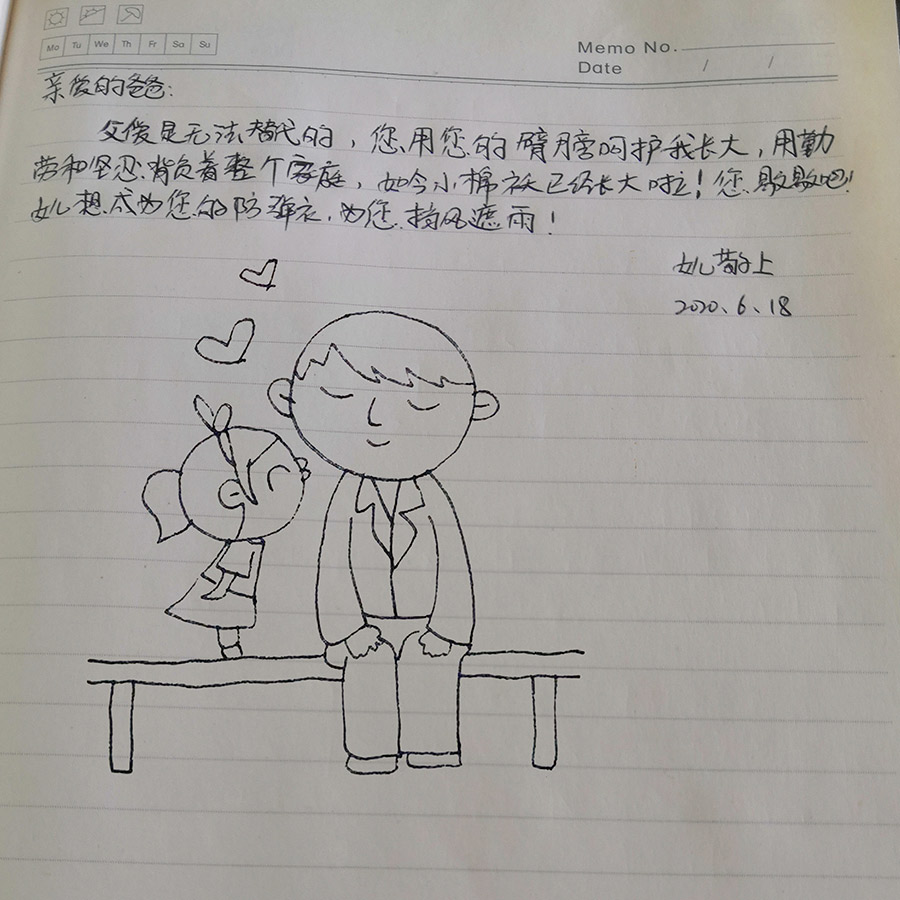 Mo Tu We Th Fr Sa Su
Memo No.
Date / /
亲爱的爸爸:
父爱是无法替代的，您用您的臂膀呵护我长大，用勤
劳和坚忍背负着整个家庭，如今小棉袄已经长大啦！您歇歇吧！
女儿想成为您的防弹衣，为您挡风遮雨！
女儿敬上
2020、6、18